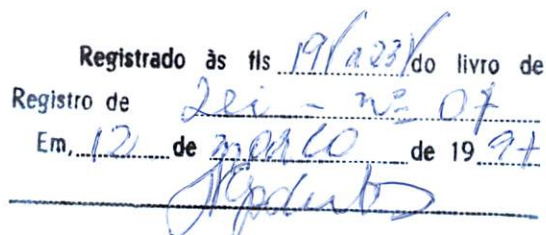 Registrado às fls 19V a 23V do livro de
Registro de Lei - nº 07
Em, 12 de março de 1997